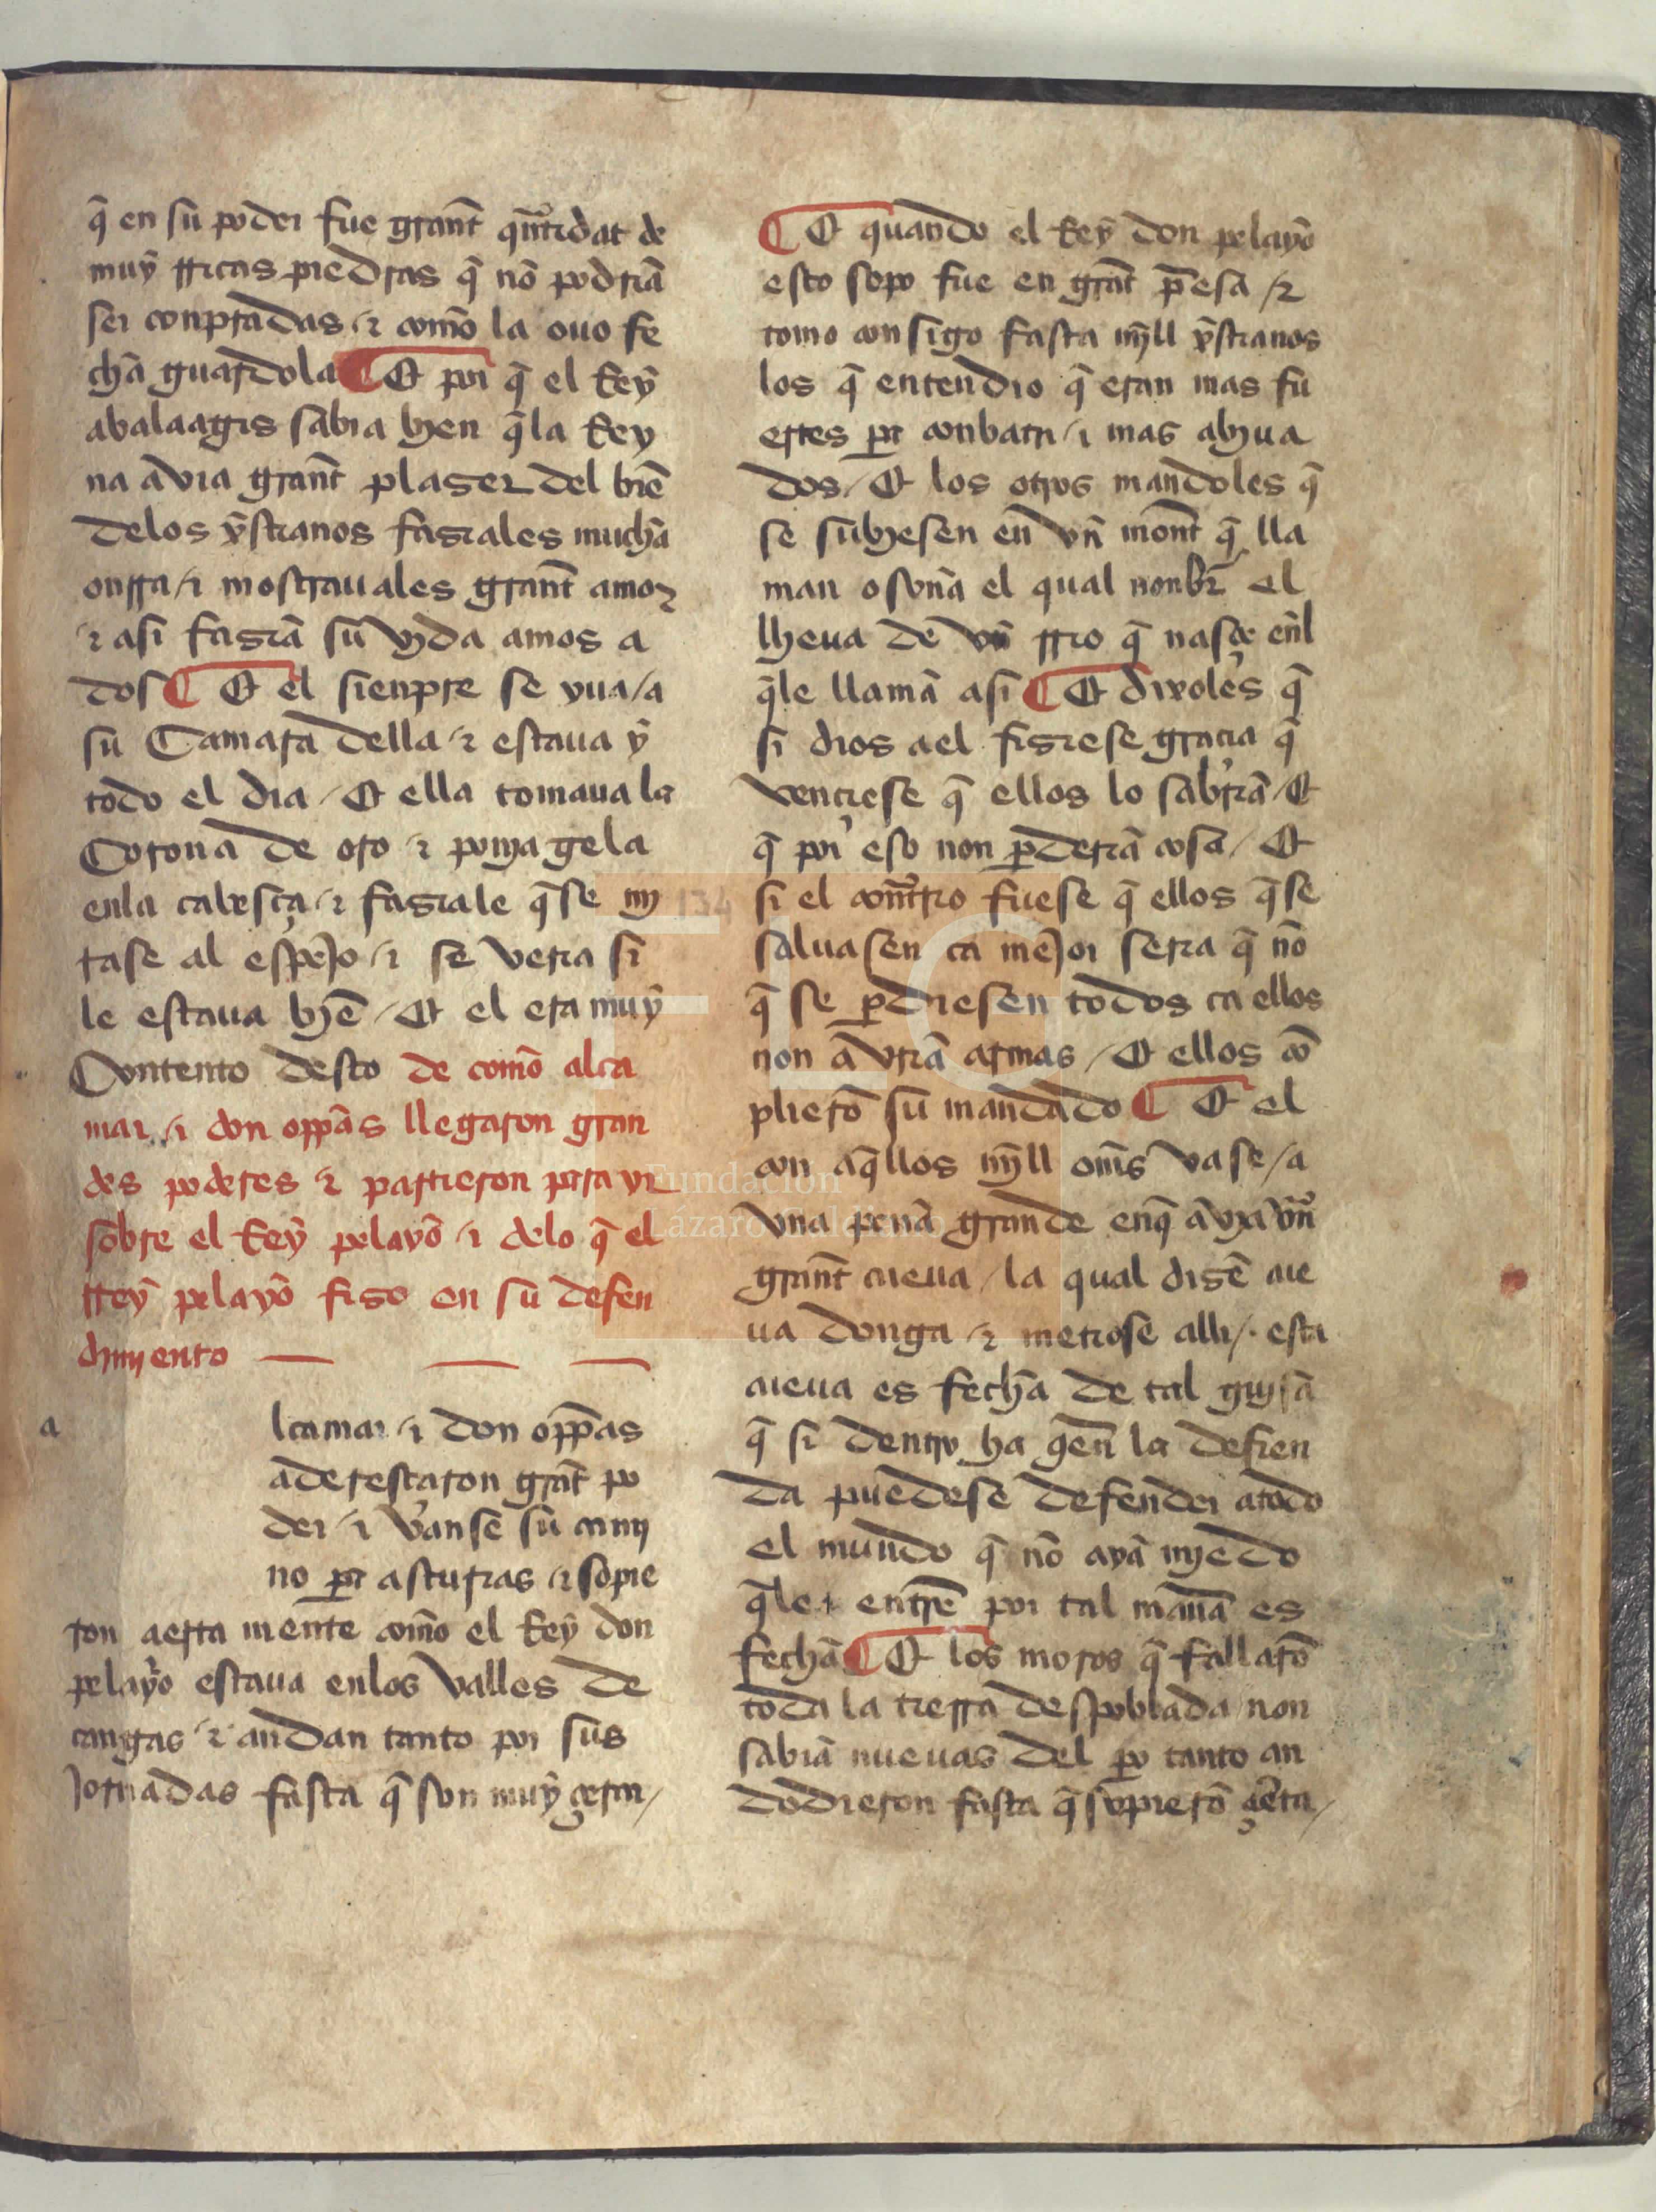 q̃ en su poder fue grant̃ qñtidat de
muỹ rricas piedras q̃ nõ podriã
ser conpradas ⁊ com̃o la ouo fe
chã guardola ¶ Et por q̃ el Reỹ
abalaagis sabia byen q̃la Rey
na avia grant̃ plaser del biẽ
delos xp̃stianos fasiales muchã
onrra / ⁊ mostraua les grant̃ amor
⁊ asi fasiã su vyda amos a
dos ¶ Et el sienpre se yua / a
su Camara della ⁊ estaua ỹ
todo el dia / Et ella tomaua la
Corona de oro ⁊ ponja gela
enla cabesça ⁊ fasiale q̃se mj
rase al espejo ⁊ se veria si
le estaua byẽ / Et el era muỹ
Contento desto de com̃o alca
mar ⁊ don opp̃as llegaron gran
des poderes ⁊ partieron para yr
sobre el Reỹ pelayõ ⁊ delo q̃ el
rreỹ pelayõ fiso en su defen
dimjento
a
lcamar ⁊ don opp̃as
aderescaron grãt po
der / ⁊ vanse su camj
no pa asturias ⁊ sopie
ron certa mente com̃o el Reỹ don
pelayo estaua enlos valles de
cangas ⁊ andan tanto por sus
Jornadas fasta q̃ son muỹ çerca /
¶ Et quando el Reỹ don pelayõ
esto sopo fue en grãt p̃esa / ⁊
tomo consigo fasta mjll xp̃stianos
los q̃ entendio q̃ eran mas fu
ertes pa conbatir / ⁊ mas abyua
dos / Et los otros mandoles q̃
se subyesen en vñ mont̃ q̃ lla
man osona el qual nonbr̃ el
lheua de vñ rrio q̃ nasçe eñl
q̃le llamã asi ¶ Et dixoles q̃
si dios a el fisiese gracia q̃
venciese q̃ ellos lo sabriã / Et
q̃ por eso non p̱deriã cosa / Et
si el cont̃rio fuese q̃ ellos q̃se
saluasen ca meJor seria q̃ nõ
q̃ se p̱diesen todos ca ellos
non avriã armas / Et ellos cõ
plierõ su mandado ¶ Et el
con aq̃llos mjll om̃s vase / a
vna penã grande enq̃ avia vñ
grant̃ cueua / la qual disẽ cue
ua donga ⁊ metiose alli / esta
cueua es fechã de tal guysã
q̃ si dentro ha q̃en la defien
da puedese defender a todo
el mundo q̃ nõ ayã mjedo
q̃le entrẽ por tal maña es
fechã ¶ Et los moros q̃ fallarõ
toda la tierra despoblada non
sabiã nueuas del p̱o tanto an
dodieron fasta q̃ sopierõ çẽta /